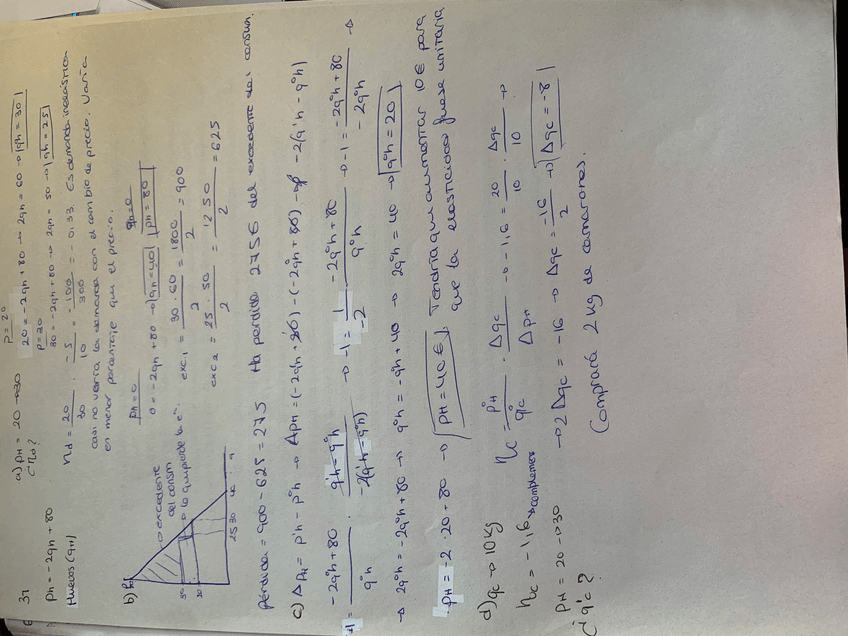 31
Ph = -2qh + 80
Huevos (q+1)
a) PH = 20 → 30
P = 20
20 = -2qh + 80 → 2qh = 60 → qh = 30
P = 30
30 = -2qh + 80 → 2qh = 50 → qh = 25
nd = 20/30 · -5/10 = -100/300 = -0.33 Es demanda inelástica
casi no varía la demanda con el cambio de precio. Varía
en menor porcentaje que el precio.
b)
excedente
del consm
50
30
25 30 40 q
Ph=0
0 = -2qh + 80 → qh = 40
qh=0
Ph = 80
exc1 = 30 · 60/2 = 1800/2 = 900
exc2 = 25 · 50/2 = 1250/2 = 625
pérdida = 900 - 625 = 275 Ha perdido 275€ del excedente del consum.
c) ΔPH = P'h - P°h → ΔPH = (-2q'h + 80) - (-2q°h + 80) → -2(q'h - q°h)
-1 = -2q°h + 80/q°h · q'h - q°h/-2(q'h - q°h) → -1 = 1/-2 · -2q°h + 80/q°h → -1 = -2q°h + 80/-2q°h →
→ 2q°h = -2q°h + 80 → q°h = -q°h + 40 → 2q°h = 40 → q°h = 20
PH = -2 · 20 + 80 → PH = 40€ Tendría que aumentar 10€ para
que la elasticidad fuese unitaria
d) qc → 10kg
nc = -1,6 → complemen
PH = 20 → 30
¿ q'c ?
nc = P°H/q°c · Δqc/ΔPH → -1,6 = 20/10 · Δqc/10 →
→ 2Δqc = -16 → Δqc = -16/2 → Δqc = -8
Comprará 2 kg de camarones.